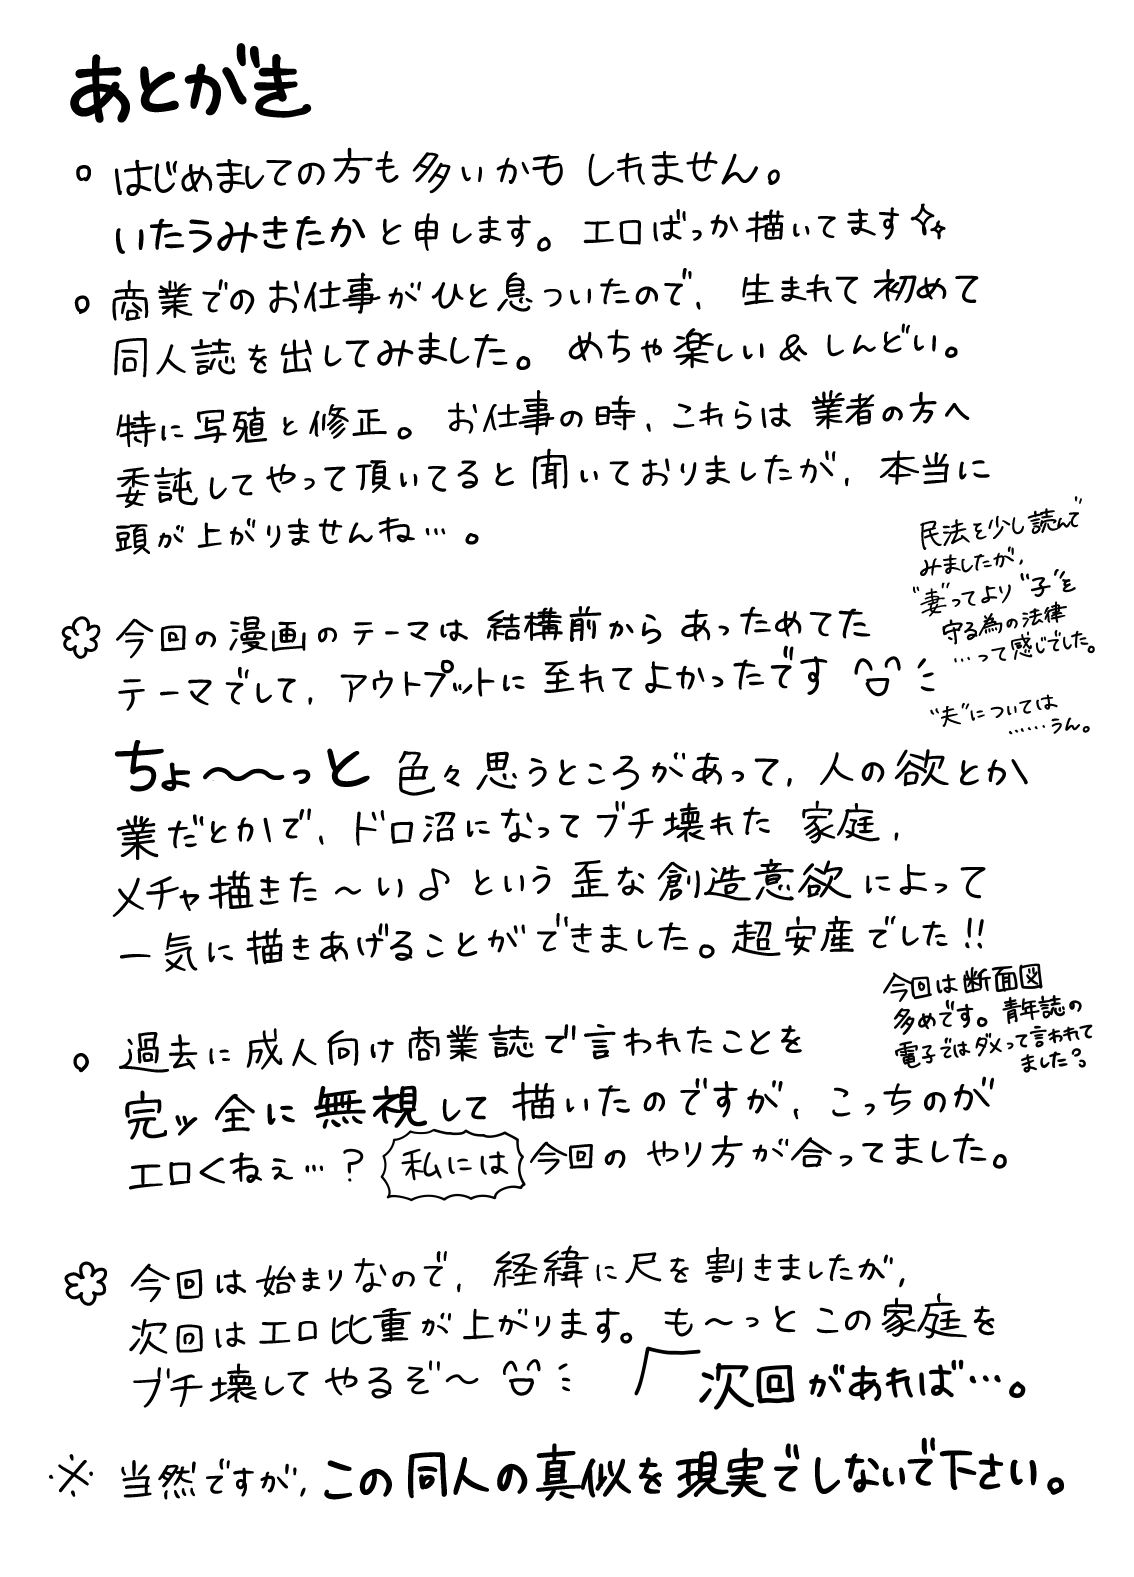 あとがき
○ はじめましての方も多いかもしれません。
いたうみきたかと申します。エロばっか描いてます✧
○ 商業でのお仕事がひと息ついたので、生まれて初めて
同人誌を出してみました。めちゃ楽しい&しんどい。
特に写殖と修正。お仕事の時、これらは業者の方へ
委託してやって頂いてると聞いておりましたが、本当に
頭が上がりませんね…。
民法を少し読んで
みましたが、
“妻”ってより“子”を
守る為の法律
…って感じでした。
“夫”については
……うん。
今回の漫画のテーマは結構前からあっためてた
テーマでして、アウトプットに至れてよかったです
ちょ〜〜っと色々思うところがあって、人の欲とか
業だとかで、ドロ沼になってブチ壊れた家庭、
メチャ描きた〜い♪という歪な創造意欲によって
一気に描きあげることができました。超安産でした!!
今回は断面図
多めです。青年誌の
電子ではダメって言われて
ました。
○ 過去に成人向け商業誌で言われたことを
完ッ全に無視して描いたのですが、こっちのが
エロくねぇ…?私には今回のやり方が合ってました。
今回は始まりなので、経緯に尺を割きましたが、
次回はエロ比重が上がります。も〜っとこの家庭を
ブチ壊してやるぞ〜
次回があれば…。
※ 当然ですが、この同人の真似を現実でしないで下さい。